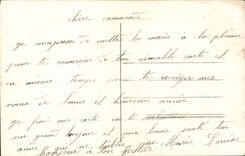 chère camarade
je m'empresse de mettre la main à la plume
pour te remercier de ton aimable carte et
en même temps te renvoyer mes
vœux de bonne et heureuse année
je fini ma carte en te
un grand bonjour et une bonne santé ton
amie qui ne t'oublie pas Marie Louise
bonjour à ton